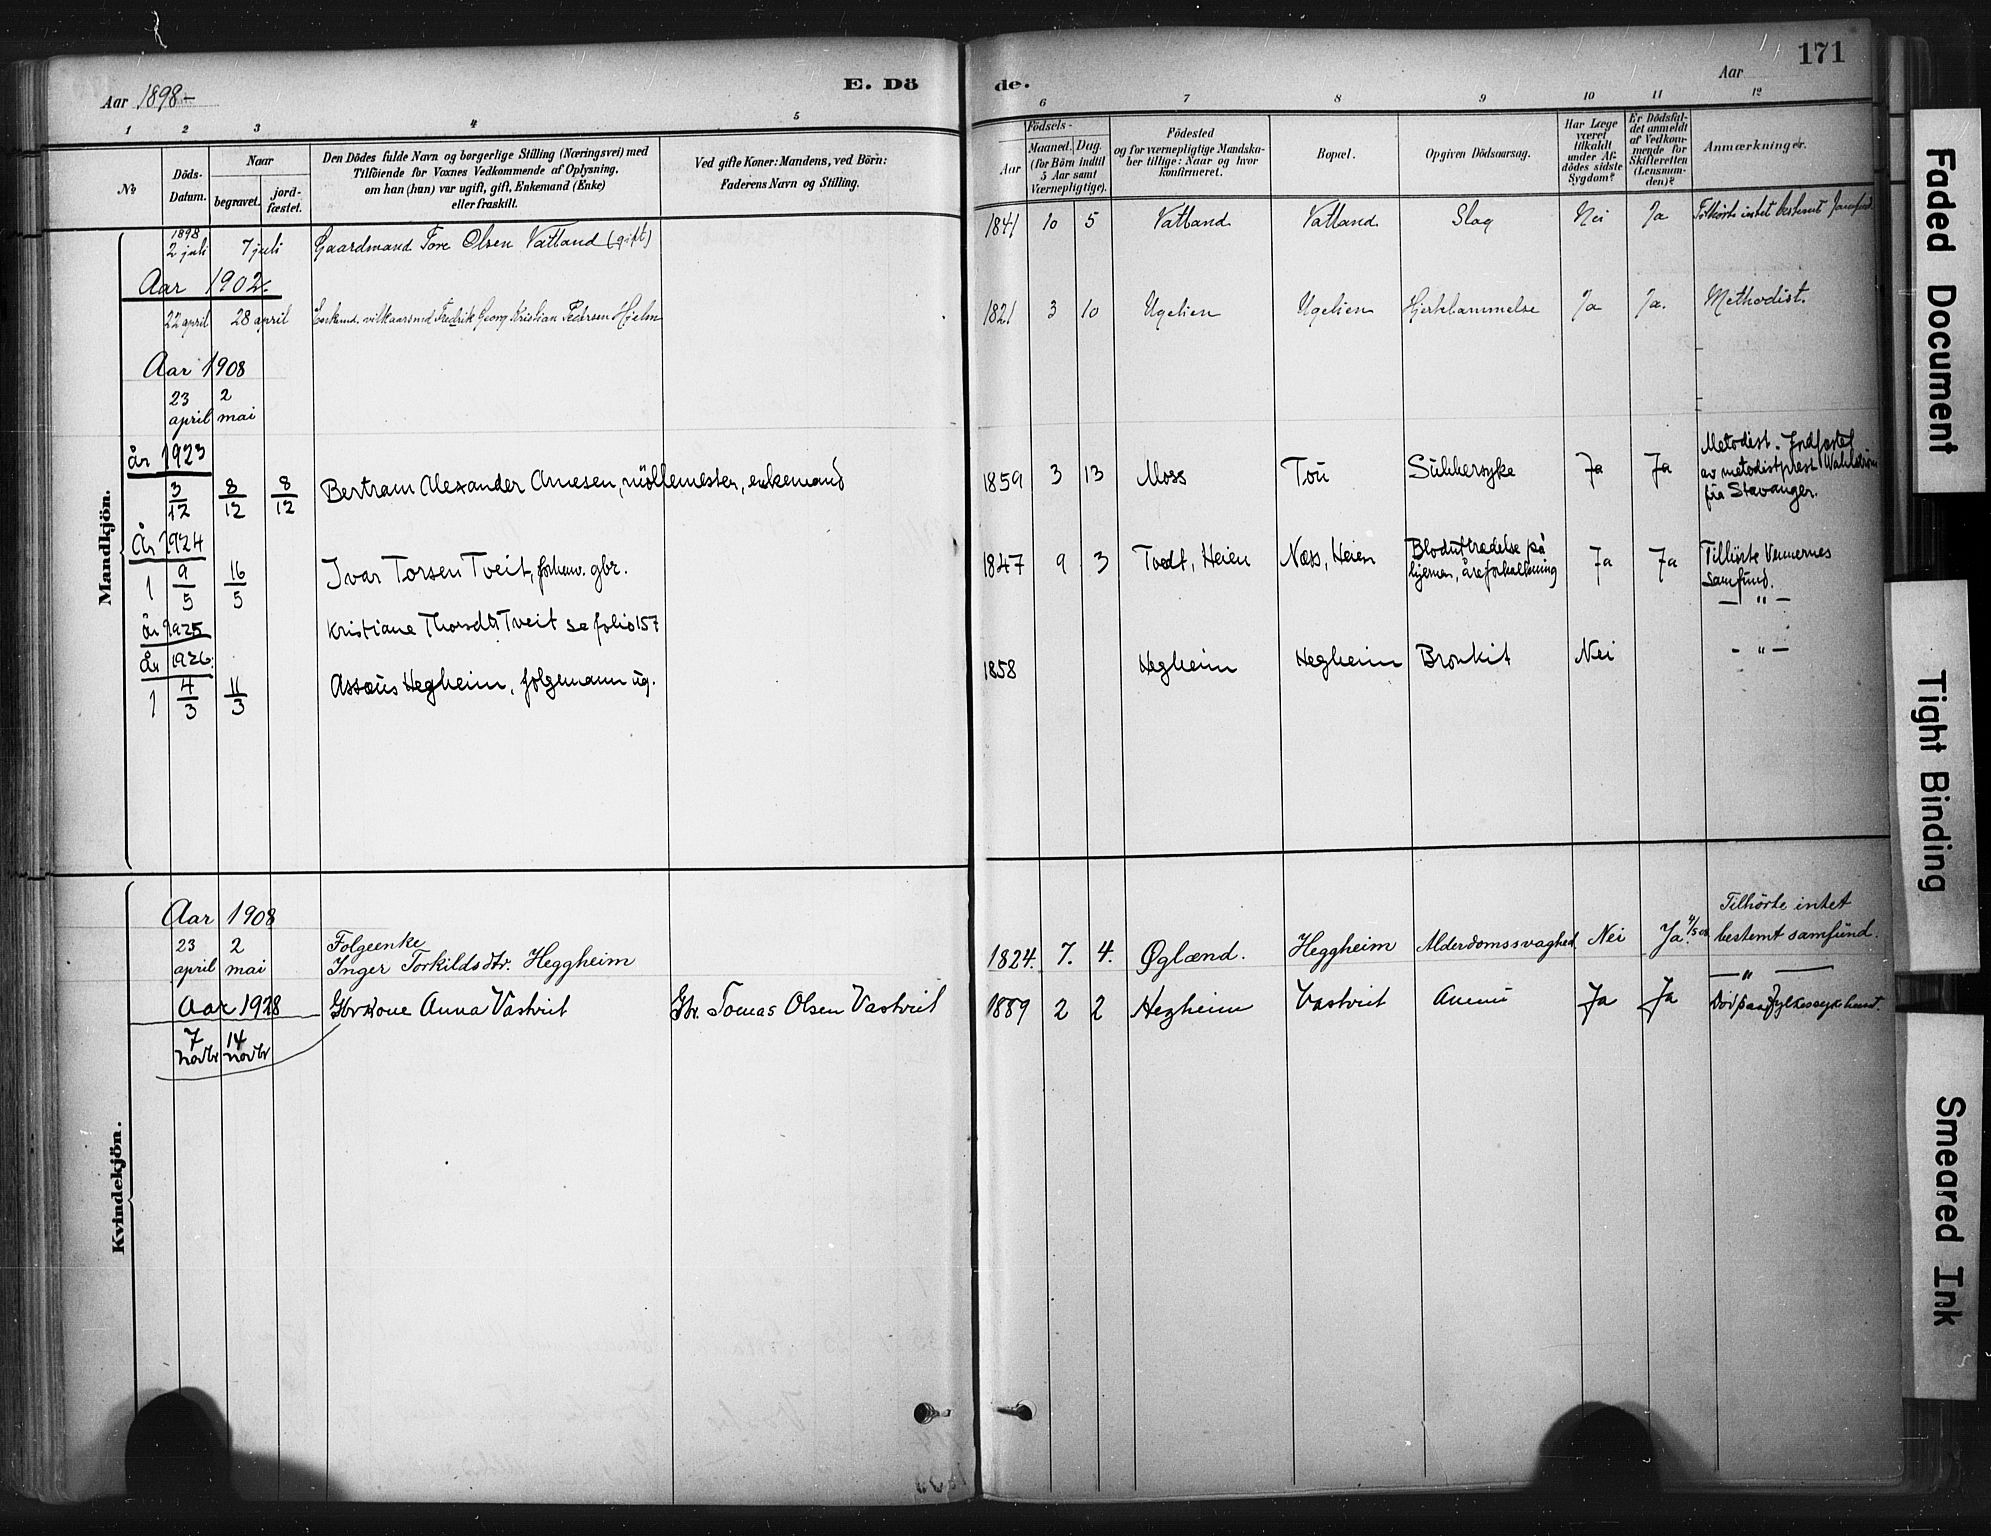 Aar 1898-
E. Dö
de.
Aar
171
1 2 3 4 5 6 7 8 9 10 11 12
No
Döds-
Datum.
Naar
begravet.
jord-
fæstet.
Den Dödes fulde Navn og borgerlige Stilling (Næringsvei) med
Tilföiende for Voxnes Vedkommende af Oplysning,
om han (hun) var ugift, gift, Enkemand (Enke)
eller fraskilt.
Ved gifte Koner: Mandens, ved Börn:
Faderens Navn og Stilling.
Födsels-
Aar
Maaned. Dag.
(for Börn indtil
5 Aar samt
Værnepligtige).
Födested
og for værnepligtige Mandska-
ber tillige: Naar og hvor
konfirmeret.
Bopæl.
Opgiven Dödsaarsag.
Har Læge
været
tilkaldt
under Af-
dödes sidste
Sygdom?
Er Dödsfal-
det anmeldt
af Vedkom-
mende for
Skifteretten
(Lensman-
den)?
Anmærkninger.
Mandkjön.
1898
2 juli 7 juli Gaardmand Tore Olsen Vatland (gift) 1841 10 5 Vatland Vatland Slag Nei Ja Tilhørte intet bestemt
Aar 1902.
22 april 28 april Enkemd. vilkaarsmd Fredrik Georg Kristian Pedersen Hjelm 1821 3 10 Ugelien Ugelien Hjertelammelse Ja Ja. Methodist.
Aar 1908
23 2
april mai
år 1923
3/12 8/12 8/12 Bertram Alexander Arnesen, möllemester, enkemand 1859 3 13 Moss Tou Sukkersyke Ja Ja Metodist. Jordfestet
av metodistprest Wahlström
fra Stavanger.
År 1924
1 9/5 16/5 Ivar Torsen Tveit, forhenv. gbr. 1847 9 3 Tvedt, Heien Næss, Heien Bloduttredelse på
hjernen, åreforkalkning Ja Ja Tillhörte Vennernes
samfund.
år 1925
Kristiane Thorsdtr Tveit se folio 157 — " —
År 1926.
1 4/3 11/3 Assaus Hegheim, folgemann ug. 1858 Hegheim Hegheim Bronkit Nei - " -
Kvindekjön.
Aar 1908
23 2
april mai
Folgeenke
Inger Torkildsdtr. Heggheim 1824. 7. 4. Øglænd. Heggheim Alderdomssvaghed Nei Ja. 4/5 08 Tilhörte intet
bestemt samfund.
— " —
Aar 1928 Gbrkone Anna Vastveit Gbr. Tomas Olsen Vastveit 1889 2 2 Hegheim Vastveit Anemi Ja Ja Död paa Fylkessykehuset.
7 14
novbr novbr
Faded Document
Tight Binding
Smeared Ink